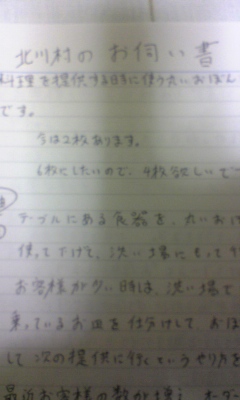 北川村のお伺い書
料理を提供する時に使う丸いおぼん
です。
今は2枚あります。
6枚にしたいので、4枚欲しいで
テーブルにある食器を、丸いおぼ
使って下げて、洗い場にもって
お客様が多い時は、洗い場で
乗っているお皿を仕分けして、おぼ
して次の提供に行くというやり方を
最近お客様の数が増え、オーダー